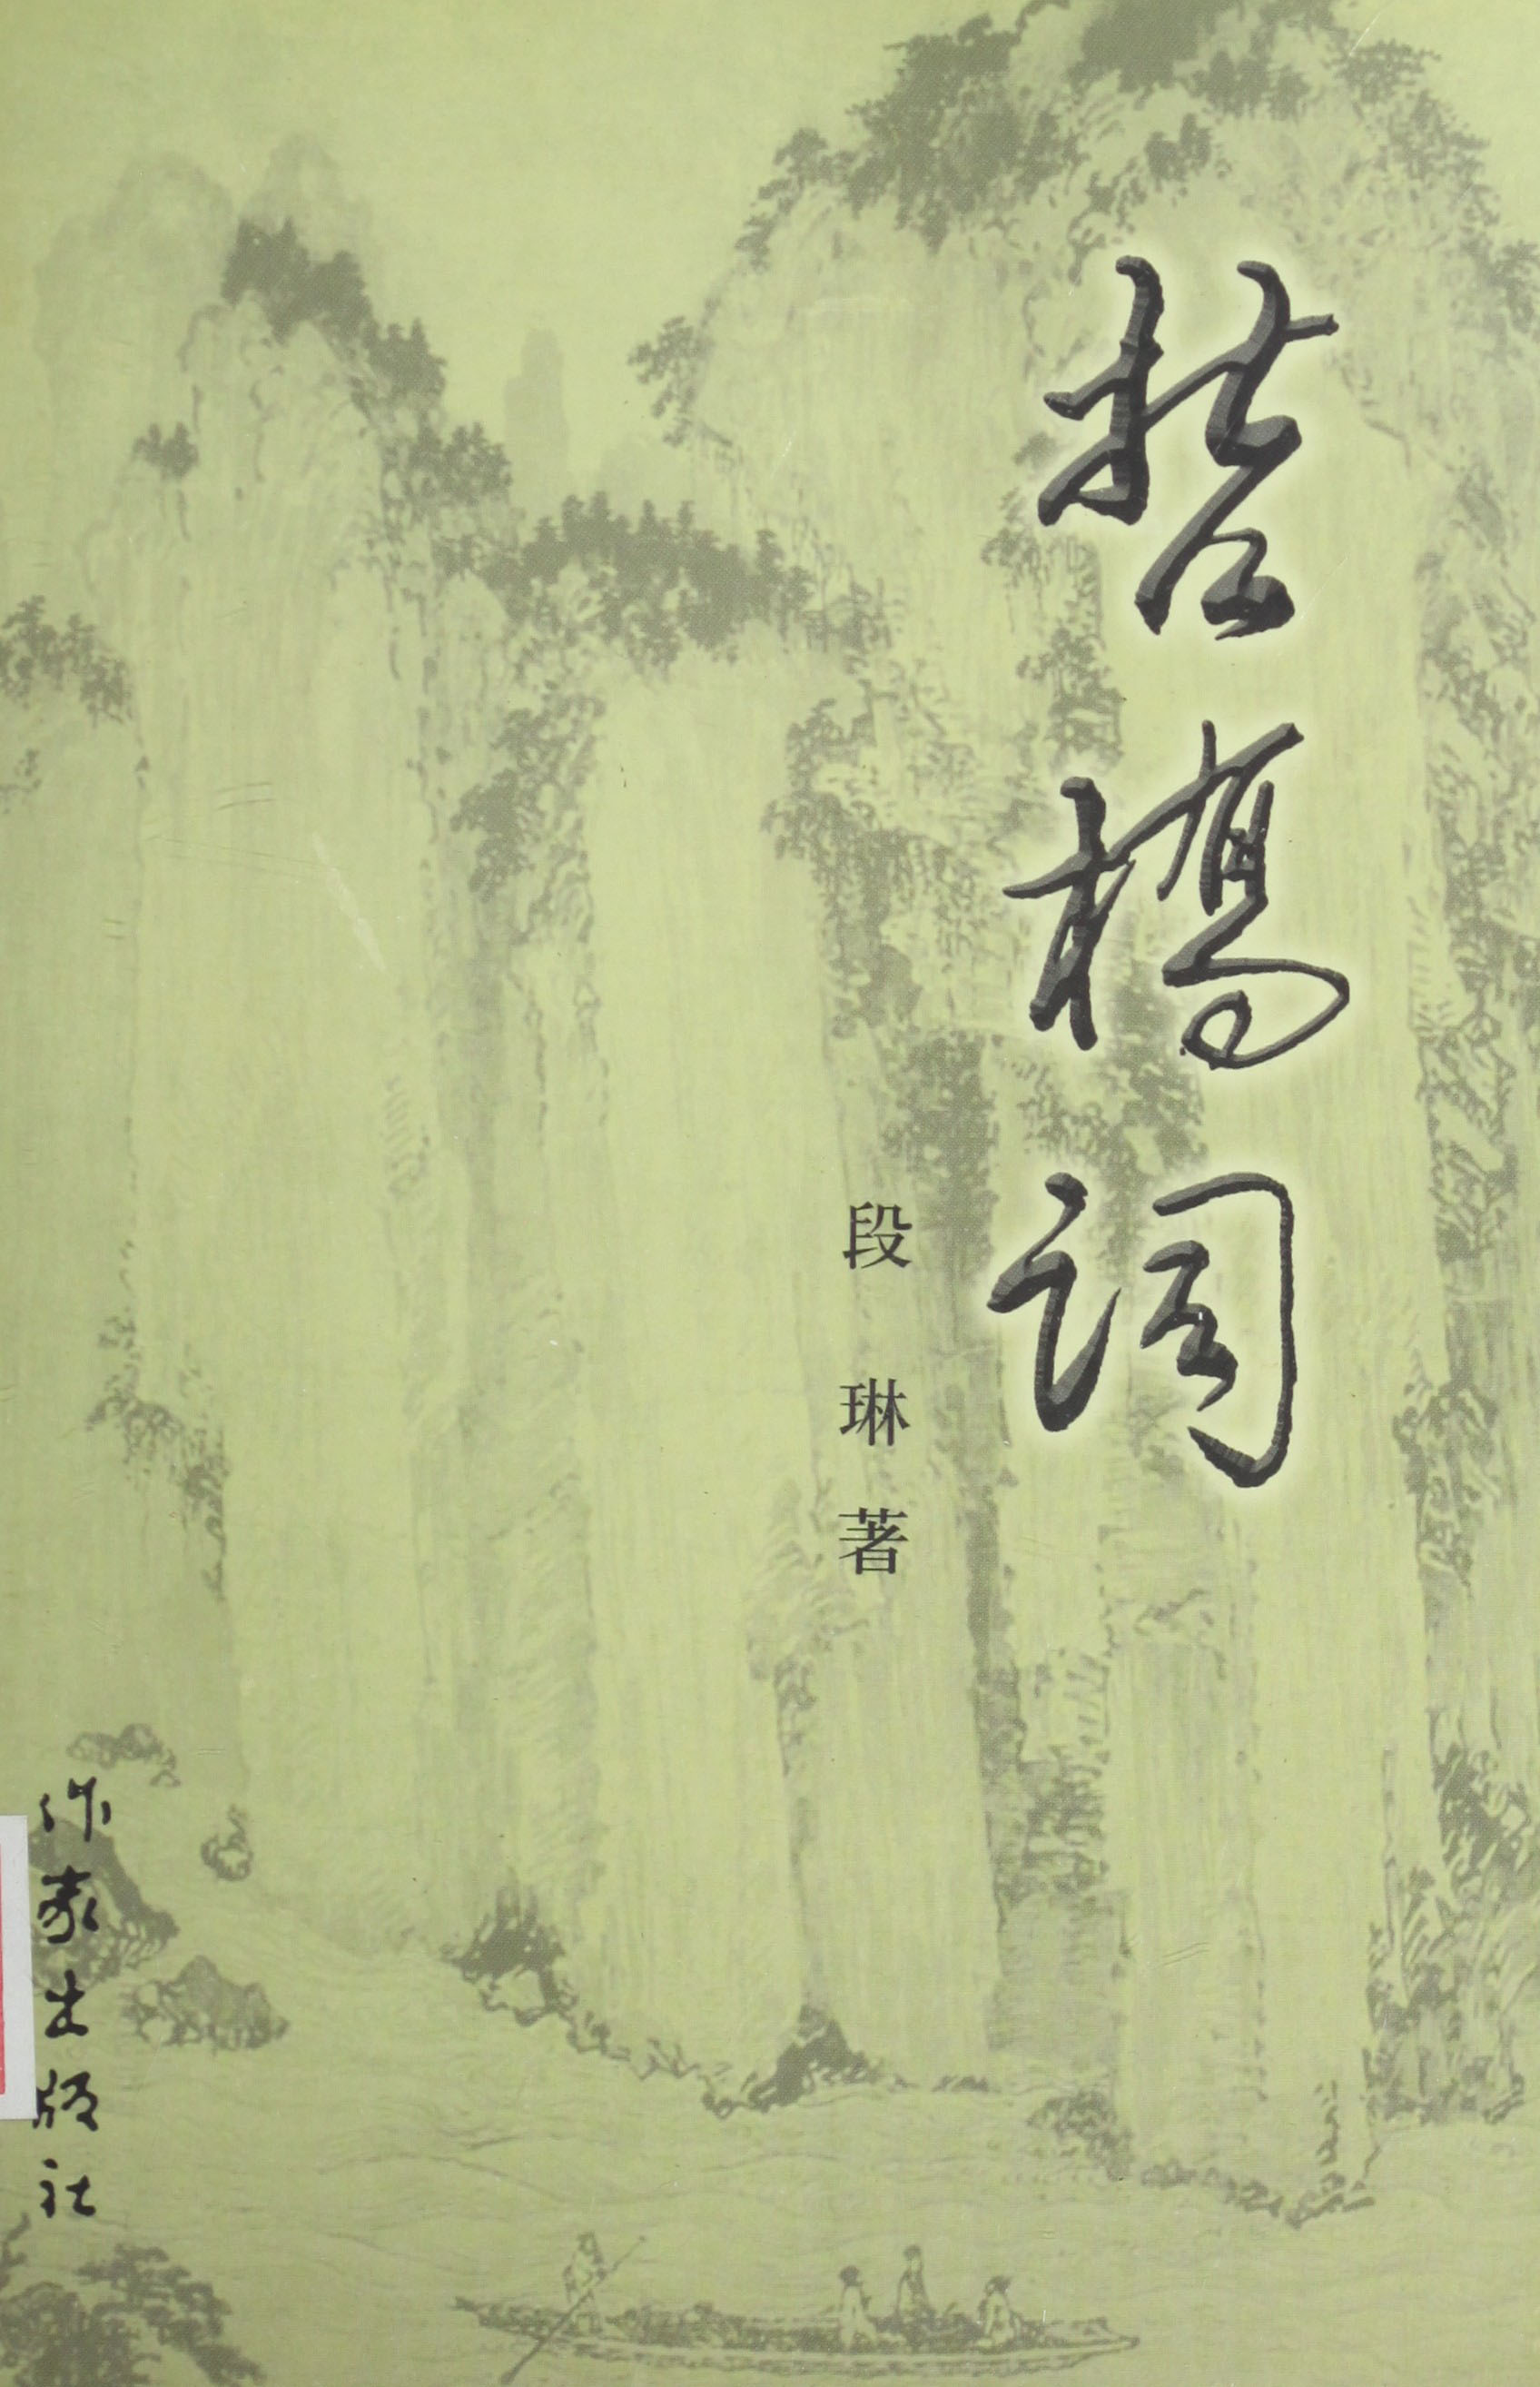 哲橋词
段琳著
作家出版社